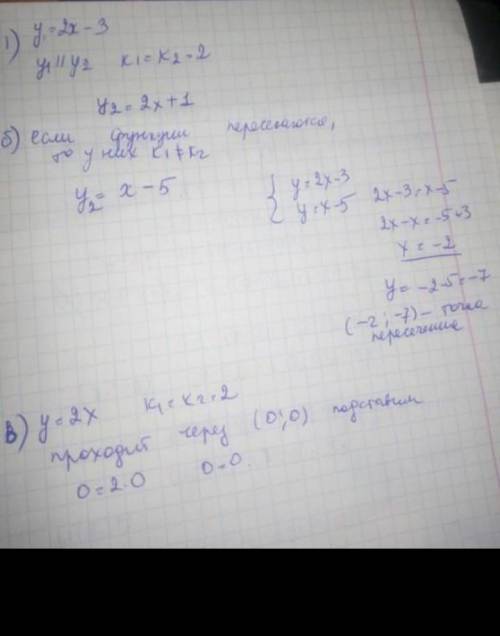 1) y₁=2x-3
y₁ || y₂ k₁=k₂=2
y₂=2x+1
б) если функции пересекаются,
то у них k₁≠k₂
y₂= x-5
{ y=2x-3
y=x-5
2x-3=x-5
2x-x=-5+3
x=-2
y=-2-5=-7
(-2; -7) - точка
пересечения
в) y=2x k₁=k₂=2
проходит через (0;0) подставим
0=2·0 0=0.